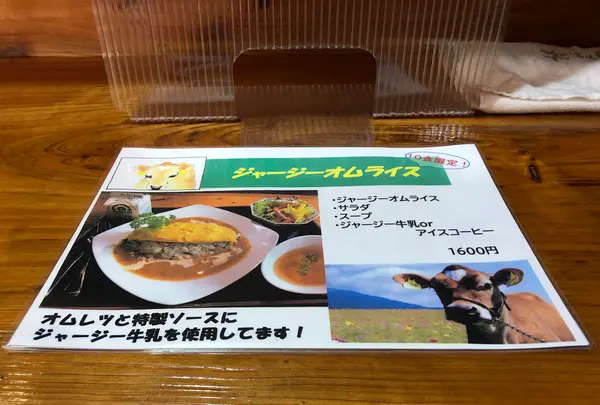 ジャージーオムライス
10食限定!
・ジャージーオムライス
・サラダ
・スープ
・ジャージー牛乳or
アイスコーヒー
1600円
オムレツと特製ソースに
ジャージー牛乳を使用してます!